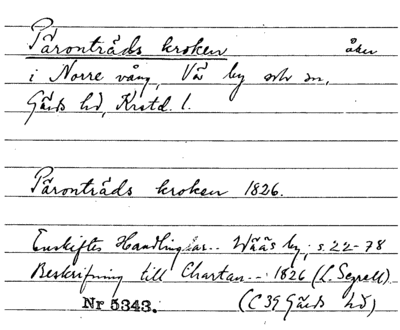 Päronträds kroken åker
i Norre vång, Vä by och sn,
Gärds hd, Krstd. l.
Päronträds kroken 1826.
Enskiftes Handlingar.. Wääs by, s. 22-78
Beskrifning till Chartan.. 1826 (L. Segrell)
Nr 5343. (C 39 Gärds hd)